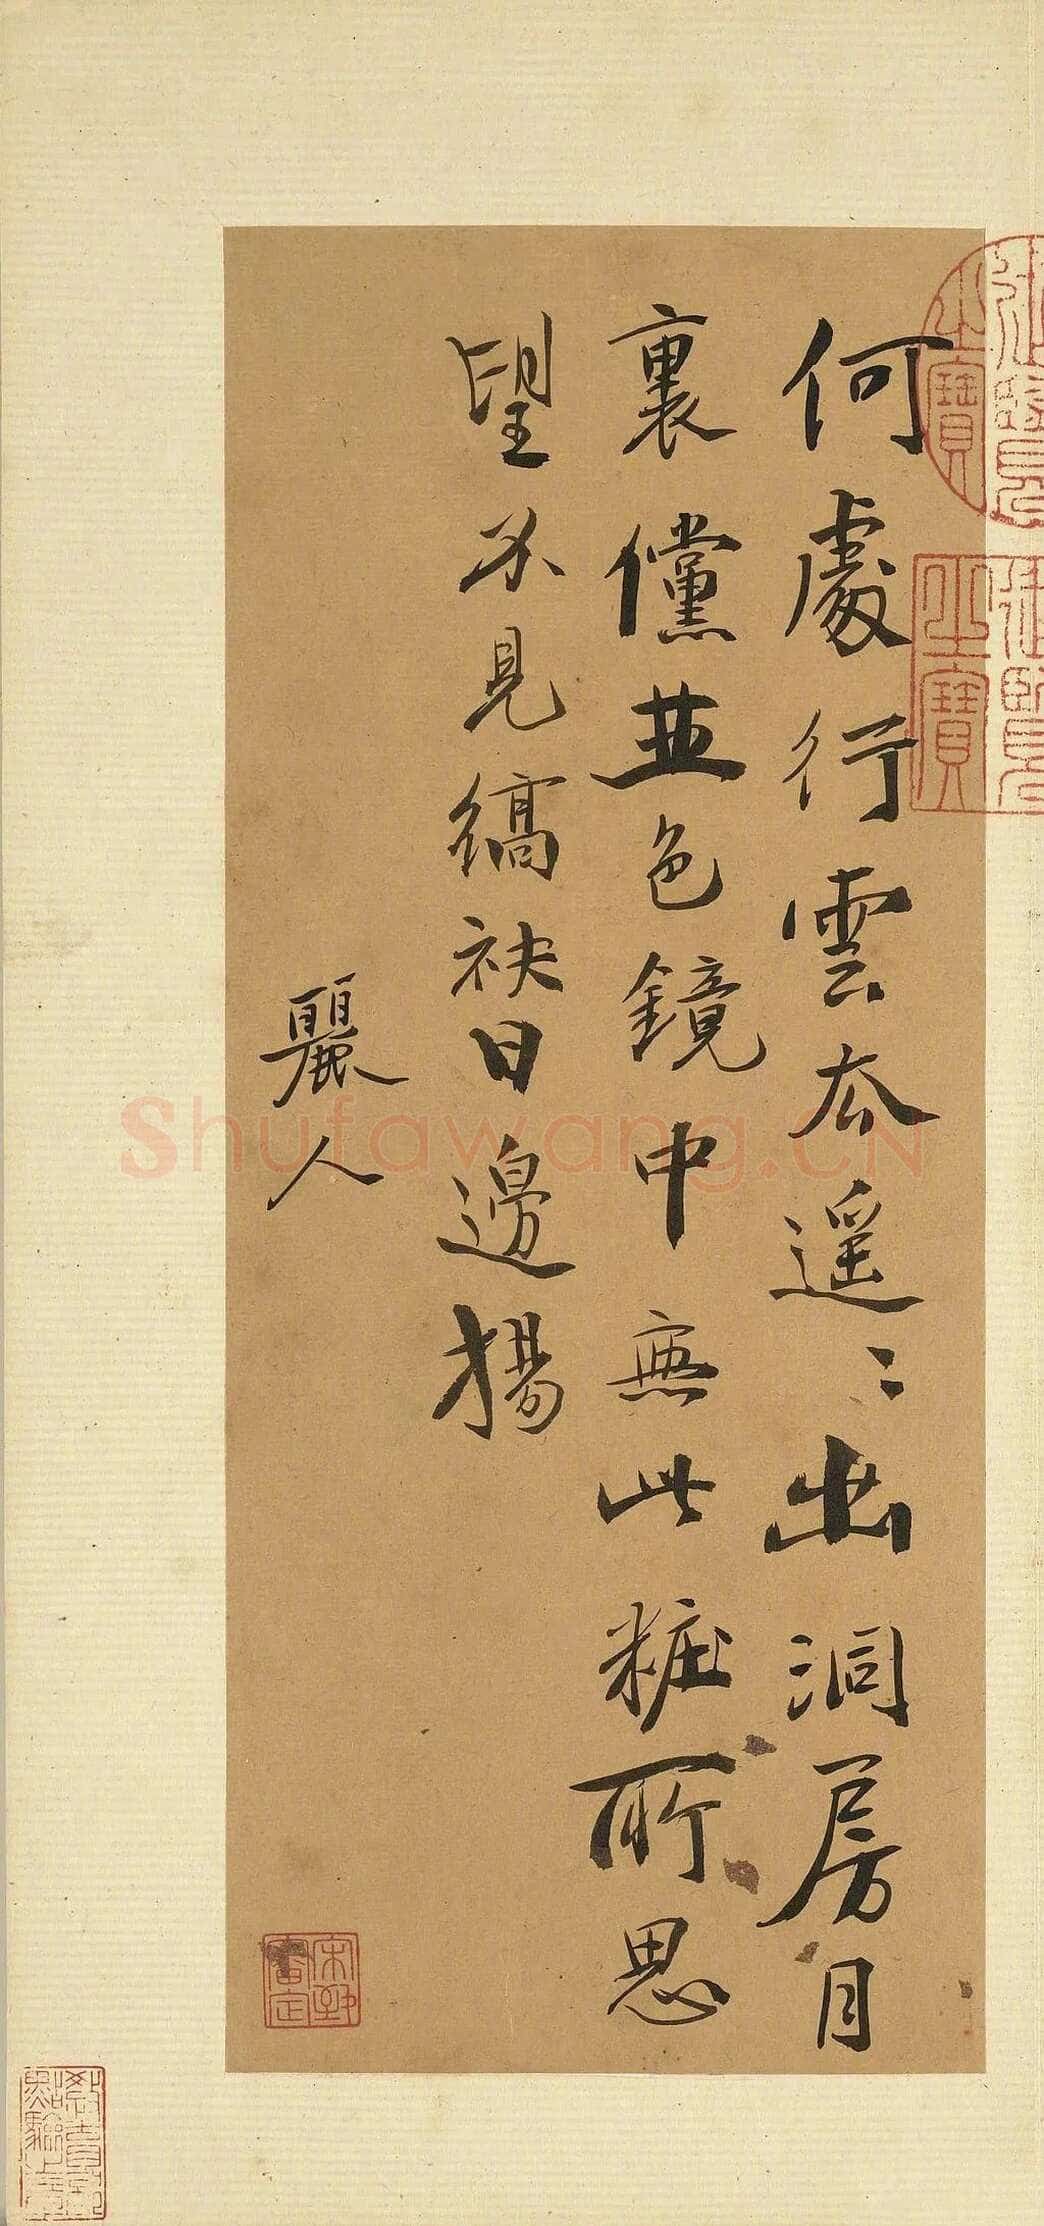 何處行雲去遥〻出洞房月
裏儻並色鏡中無此粧所思
望不見縞袂日邊揚
麗人
宋犖審定
Shufawang.CN